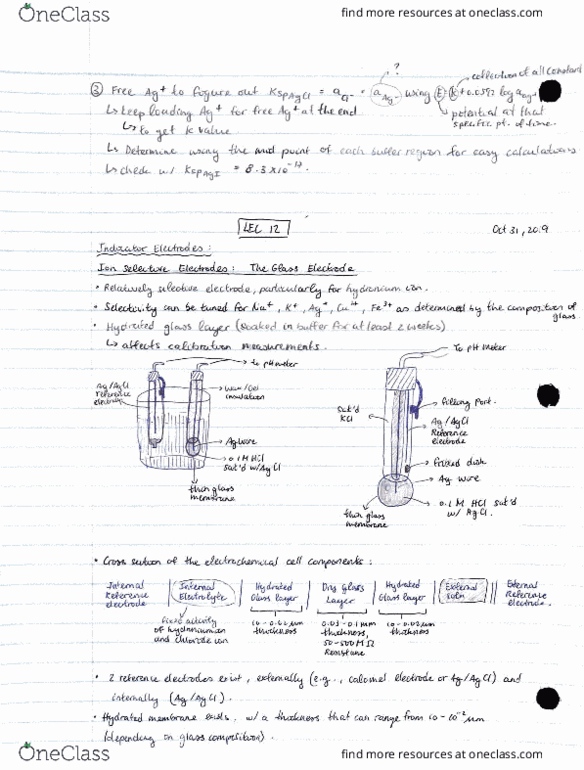 OneClass
find more resources at oneclass.com
?
collection of all constant
③ Free Ag⁺ to figure out KspAgCl = aCl⁻ · aAg⁺ using E = K + 0.0592 log aAg⁺
↳ keep loading Ag⁺ for free Ag⁺ at the end
potential at that
specific pt. of time.
↳ to get K value
↳ Determine using the mid point of each buffer region for easy calculations
↳ check w/ KspAgI = 8.3 x 10⁻¹⁷.
LEC 12
Oct 31, 2019
Indicator Electrodes:
Ion Selective Electrodes: The Glass Electrode
• Relatively selective electrode, particularly for hydronium ion.
• Selectivity can be tuned for Na⁺, K⁺, Ag⁺, Cu²⁺, Fe³⁺ as determined by the composition of glass.
• Hydrated glass layer (soaked in buffer for at least 2 weeks)
↳ affects calibration measurements.
to pH meter
Ag/AgCl
reference
electrode
Wax/Gel
insulation
Ag wire
0.1M HCl
sat'd w/AgCl
thin glass
membrane
To pH meter
Sat'd
KCl
filling port.
Ag/AgCl
Reference
electrode
fritted disk
Ag wire
0.1 M HCl sat'd
w/ AgCl.
thin glass
membrane
• Cross section of the electrochemical cell components:
Internal
Reference
electrode
Internal
Electrolyte
Hydrated
Glass layer
Dry Glass
Layer
Hydrated
Glass layer
External
soln
External
Reference
electrode.
fixed activity
of hydronium
and chloride ion
10-0.01 µm
thickness
0.03-0.1mm
thickness,
50-500 MΩ
Resistance
10-0.01µm
thickness
• 2 reference electrodes exist, externally (e.g., calomel electrode or Ag/AgCl) and
internally (Ag/AgCl).
• Hydrated membrane exists w/ a thickness that can range from 10-10⁻² µm
(depending on glass composition).
OneClass
find more resources at oneclass.com